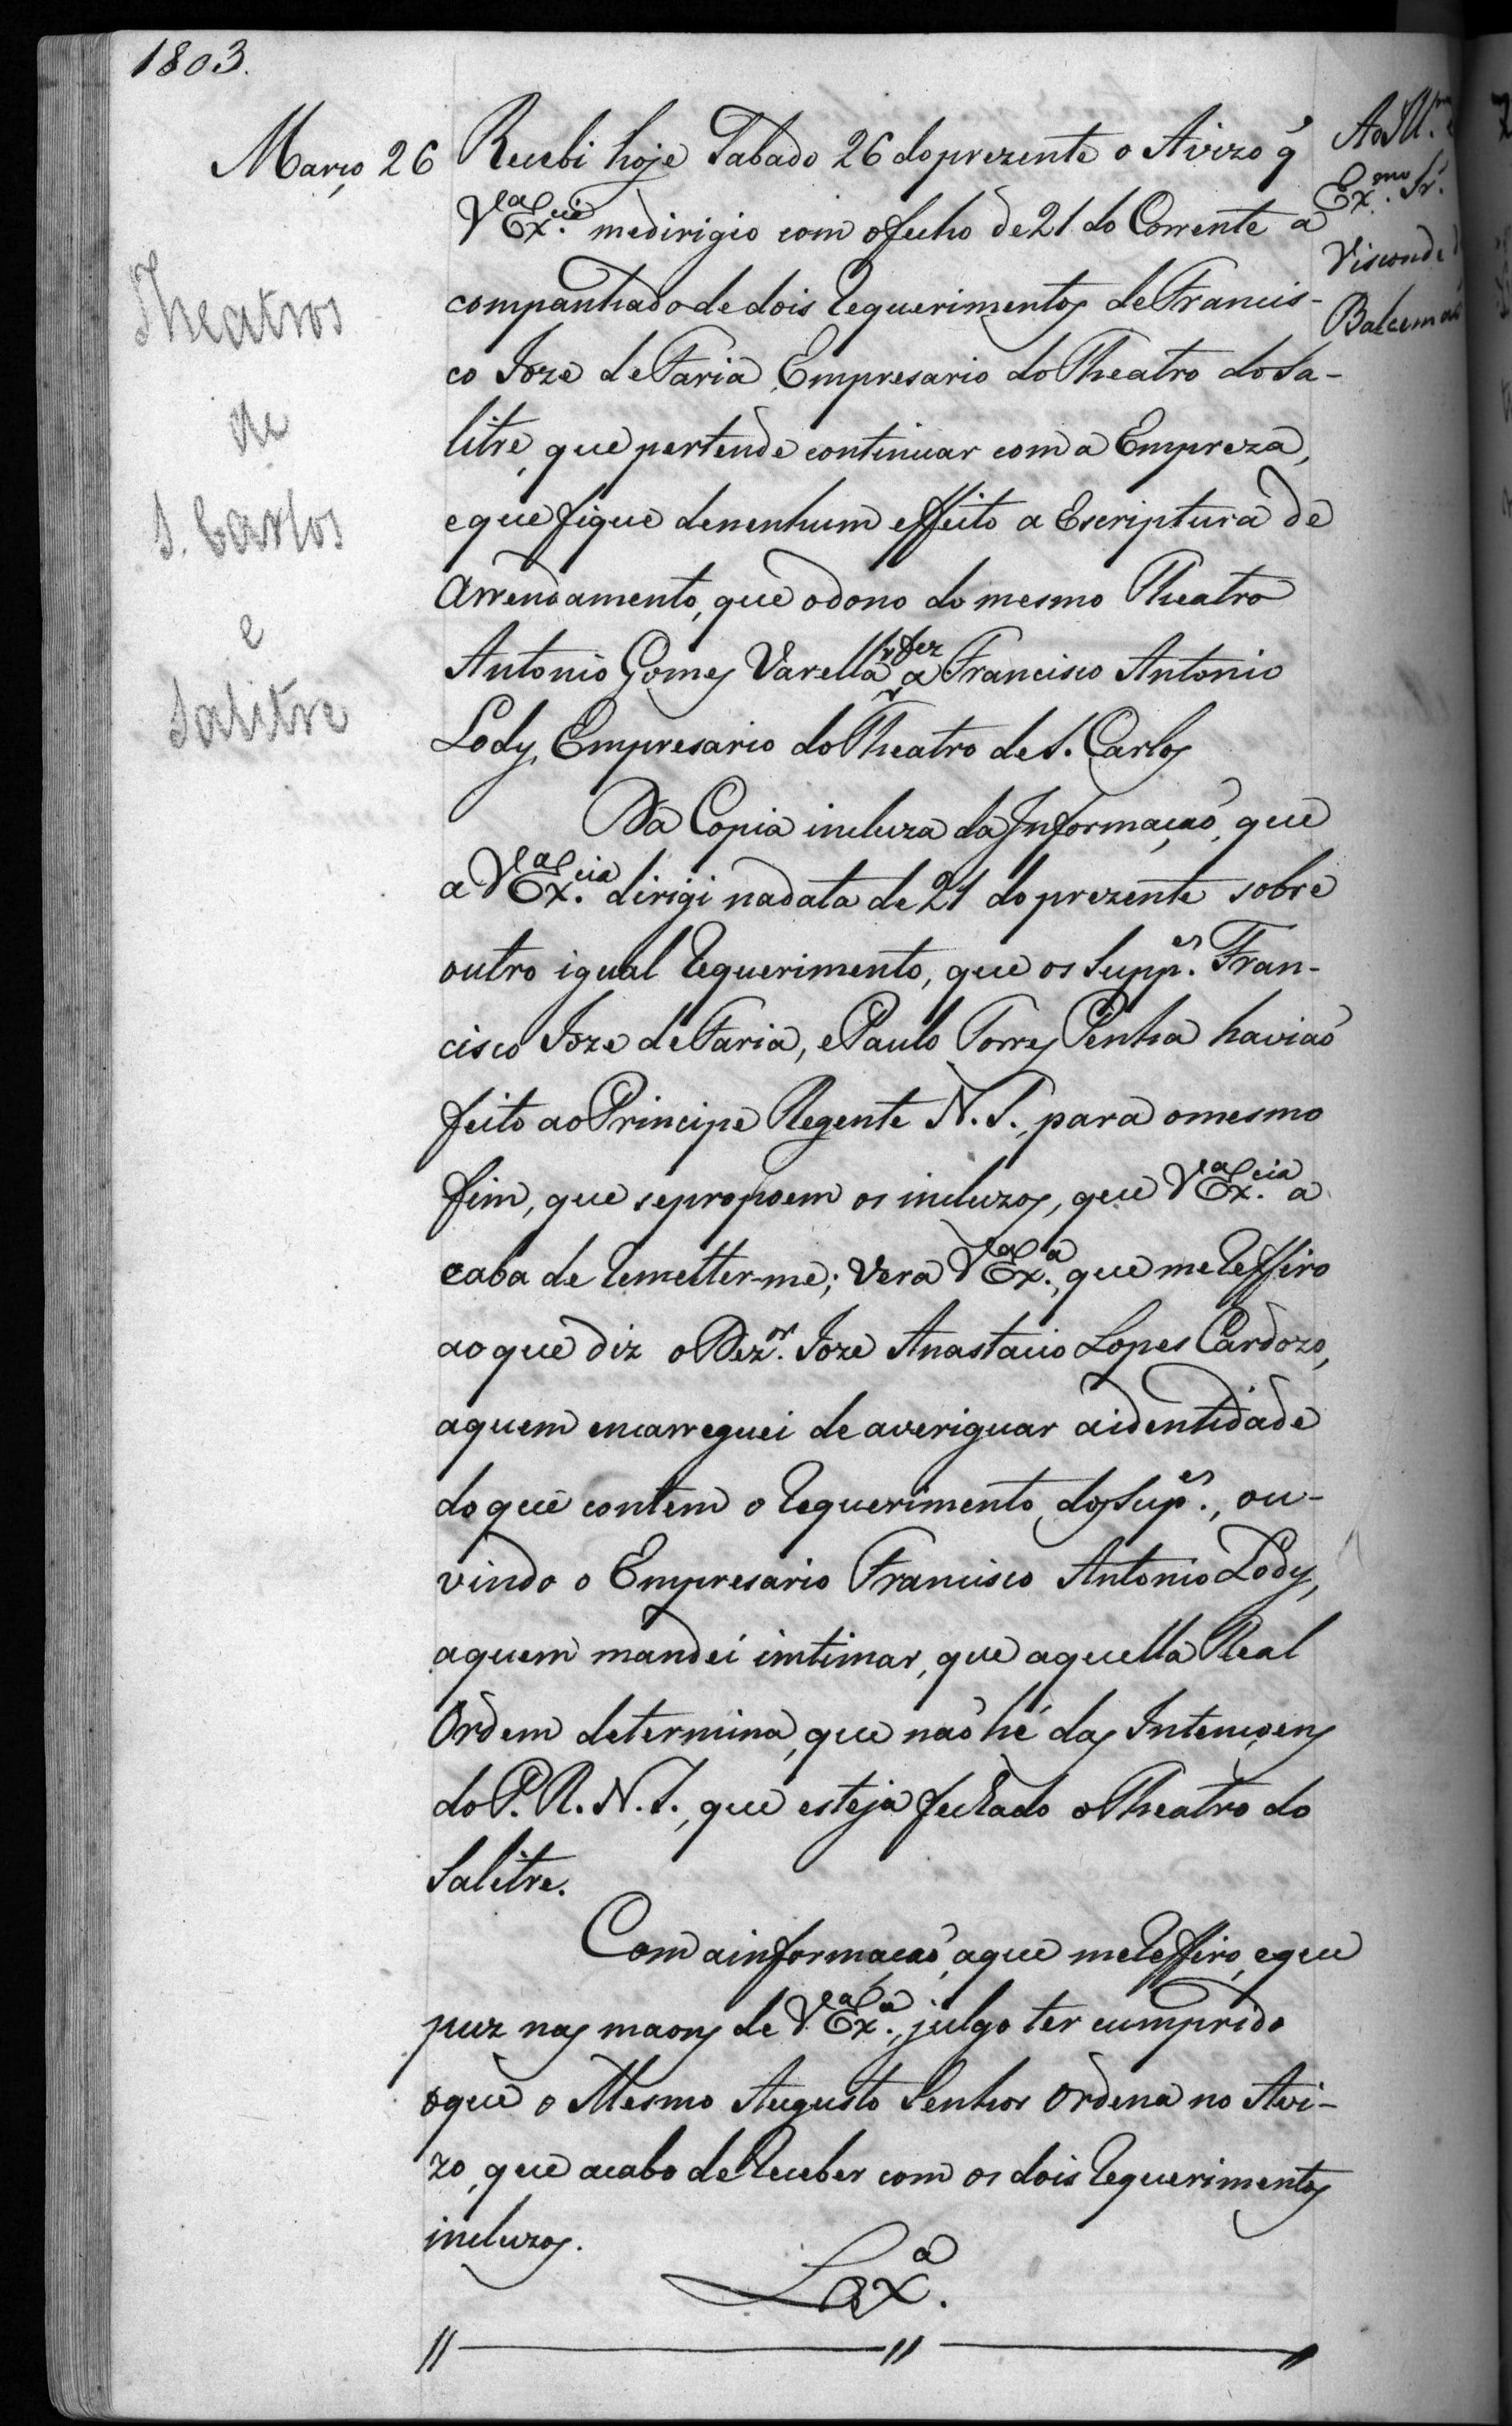 1803.
Março 26
Recebi hoje Sabado 26 do prezente o Avizo q̃
V.ª Ex.cia me dirigio com o fecho de 21 do Corrente a
companhado de dois Requerimentos de Francis-
co Joze de Faria, Empresario do Theatro do Sa-
litre, que pertende continuar com a Empreza,
e que fique de nenhum effeito a Escriptura de
Arrendamento, que o dono do mesmo Theatro
Antonio Gomes Varella fez a Francisco Antonio
Lody, Empresario do Theatro de S. Carlos
Da Copia incluza da Informação, que
a V.ª Ex.cia dirigi na data de 21 do prezente sobre
outro igual Requerimento, que os Supp.es Fran-
cisco Joze de Faria, e Paulo Torres Penha havião
feito ao Principe Regente N. S., para o mesmo
fim, que se propoem os incluzos, que V.ª Ex.cia a
caba de Remetter-me; Verá V.ª Ex.ª, que me Reffiro
ao que diz o Dez.or Joze Anastacio Lopes Cardozo,
a quem encarreguei de averiguar a identidade
do que contem o Requerimento dos Sup.es, ou-
vindo o Empresario Francisco Antonio Lody,
a quem mandei intimar, que aquella Real
Ordem determina, que não hé das Intençoens
do P. R. N. S., que esteja fechado o Theatro do
Salitre.
Com a informação, a que me Reffiro, e que
puz nas maons de V.ª Ex.ª, julgo ter cumprido
o que o Mesmo Augusto Senhor Ordena no Avi-
zo, que acabo de Receber com os dois Requerimentos
incluzos.
Lx.ª
Ao Ill.mo e
Ex.mo Sr.
Visconde d
Balcemão
Theatros
de
S. Carlos
e
Salitre